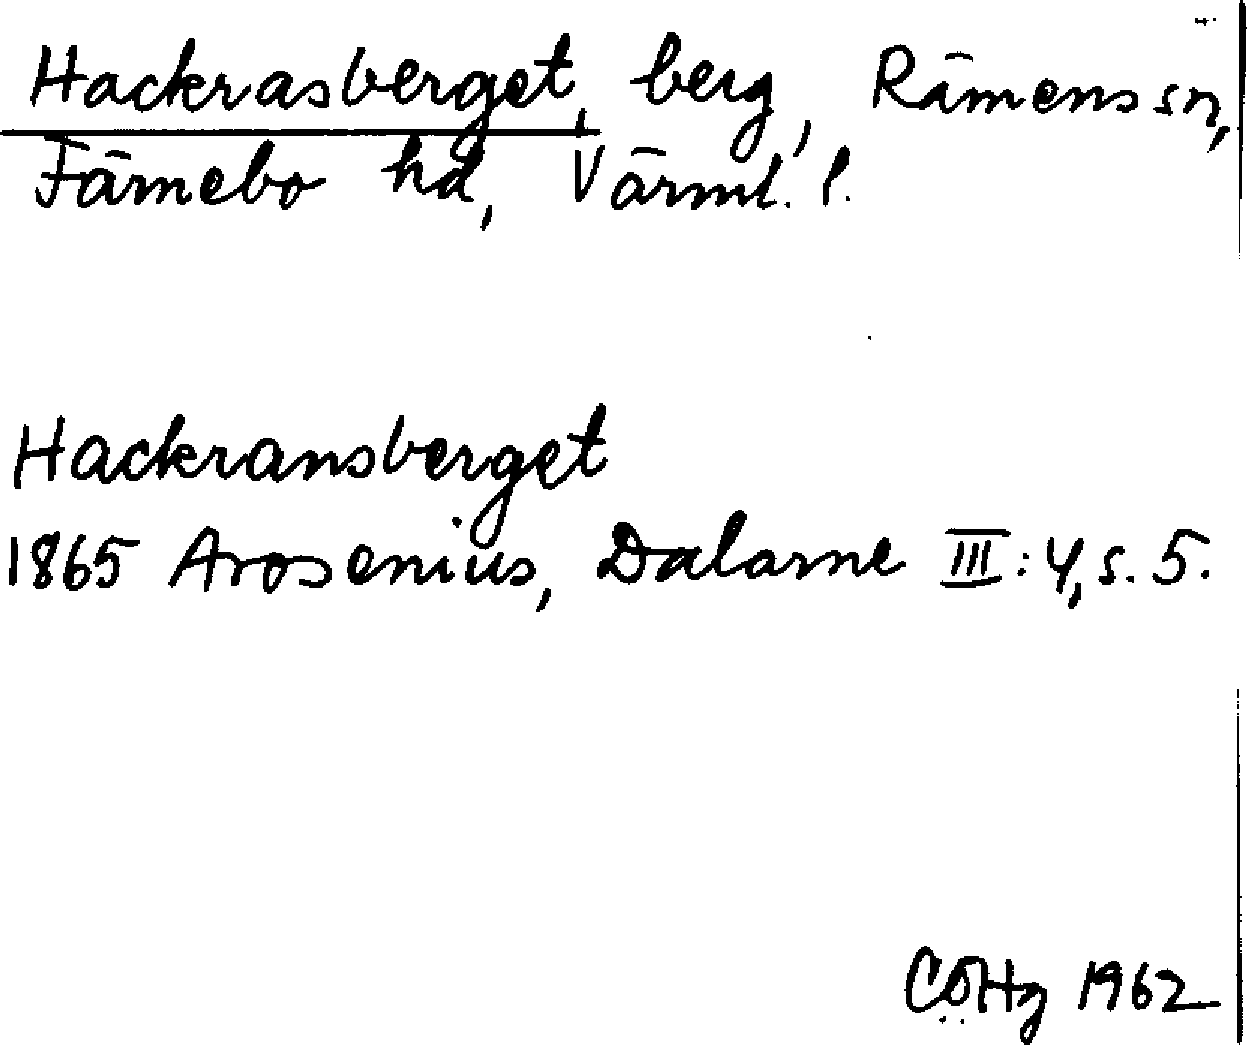 Hackrasberget, berg, Rämens sn,
Färnebo hd, Värml. l.
Hackransberget
1865 Arosenius, Dalarne III: 4, s. 5.
CÖHg 1962